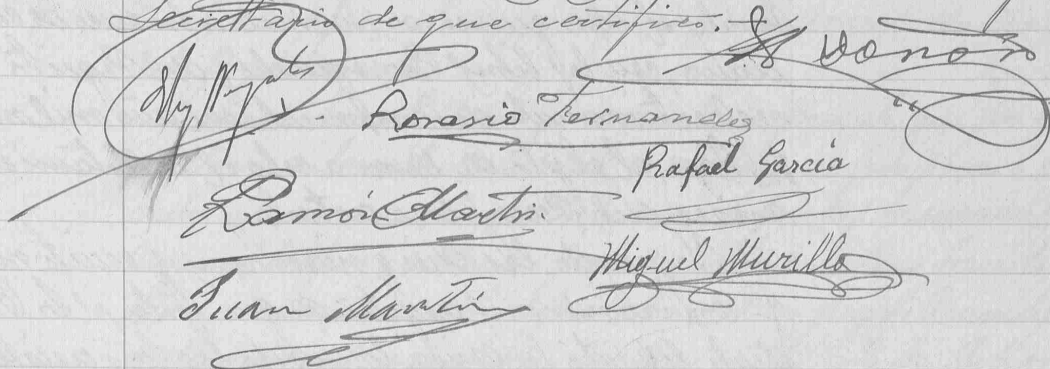 Secretario de que certifico.
Rosario Fernandez
Rafael García
Ramón Martin.
Miguel Murillo
Juan Martin